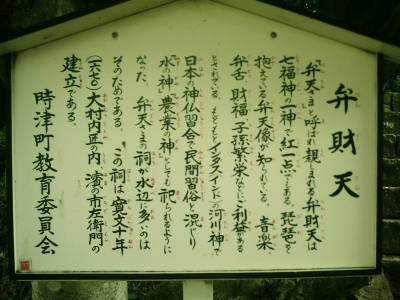 弁財天
「弁天さま」と呼ばれ親しまれる弁財天は
七福神の一神で紅一点でもある。琵琶を
抱えている弁天像が知られている。音楽、
弁舌、財福、子孫繁栄などにご利益がある
とされている。もともとインダス(インド)の河川神で
日本の神仏習合で民間習俗と混じり
「水の神」「農業の神」としても祀られるように
なった。弁天さまの祠が水辺に多いのは
そのためである。この祠は寛文十年
(一六七〇)大村内匠の内濱の市左衛門の
建立である。
時津町教育委員会